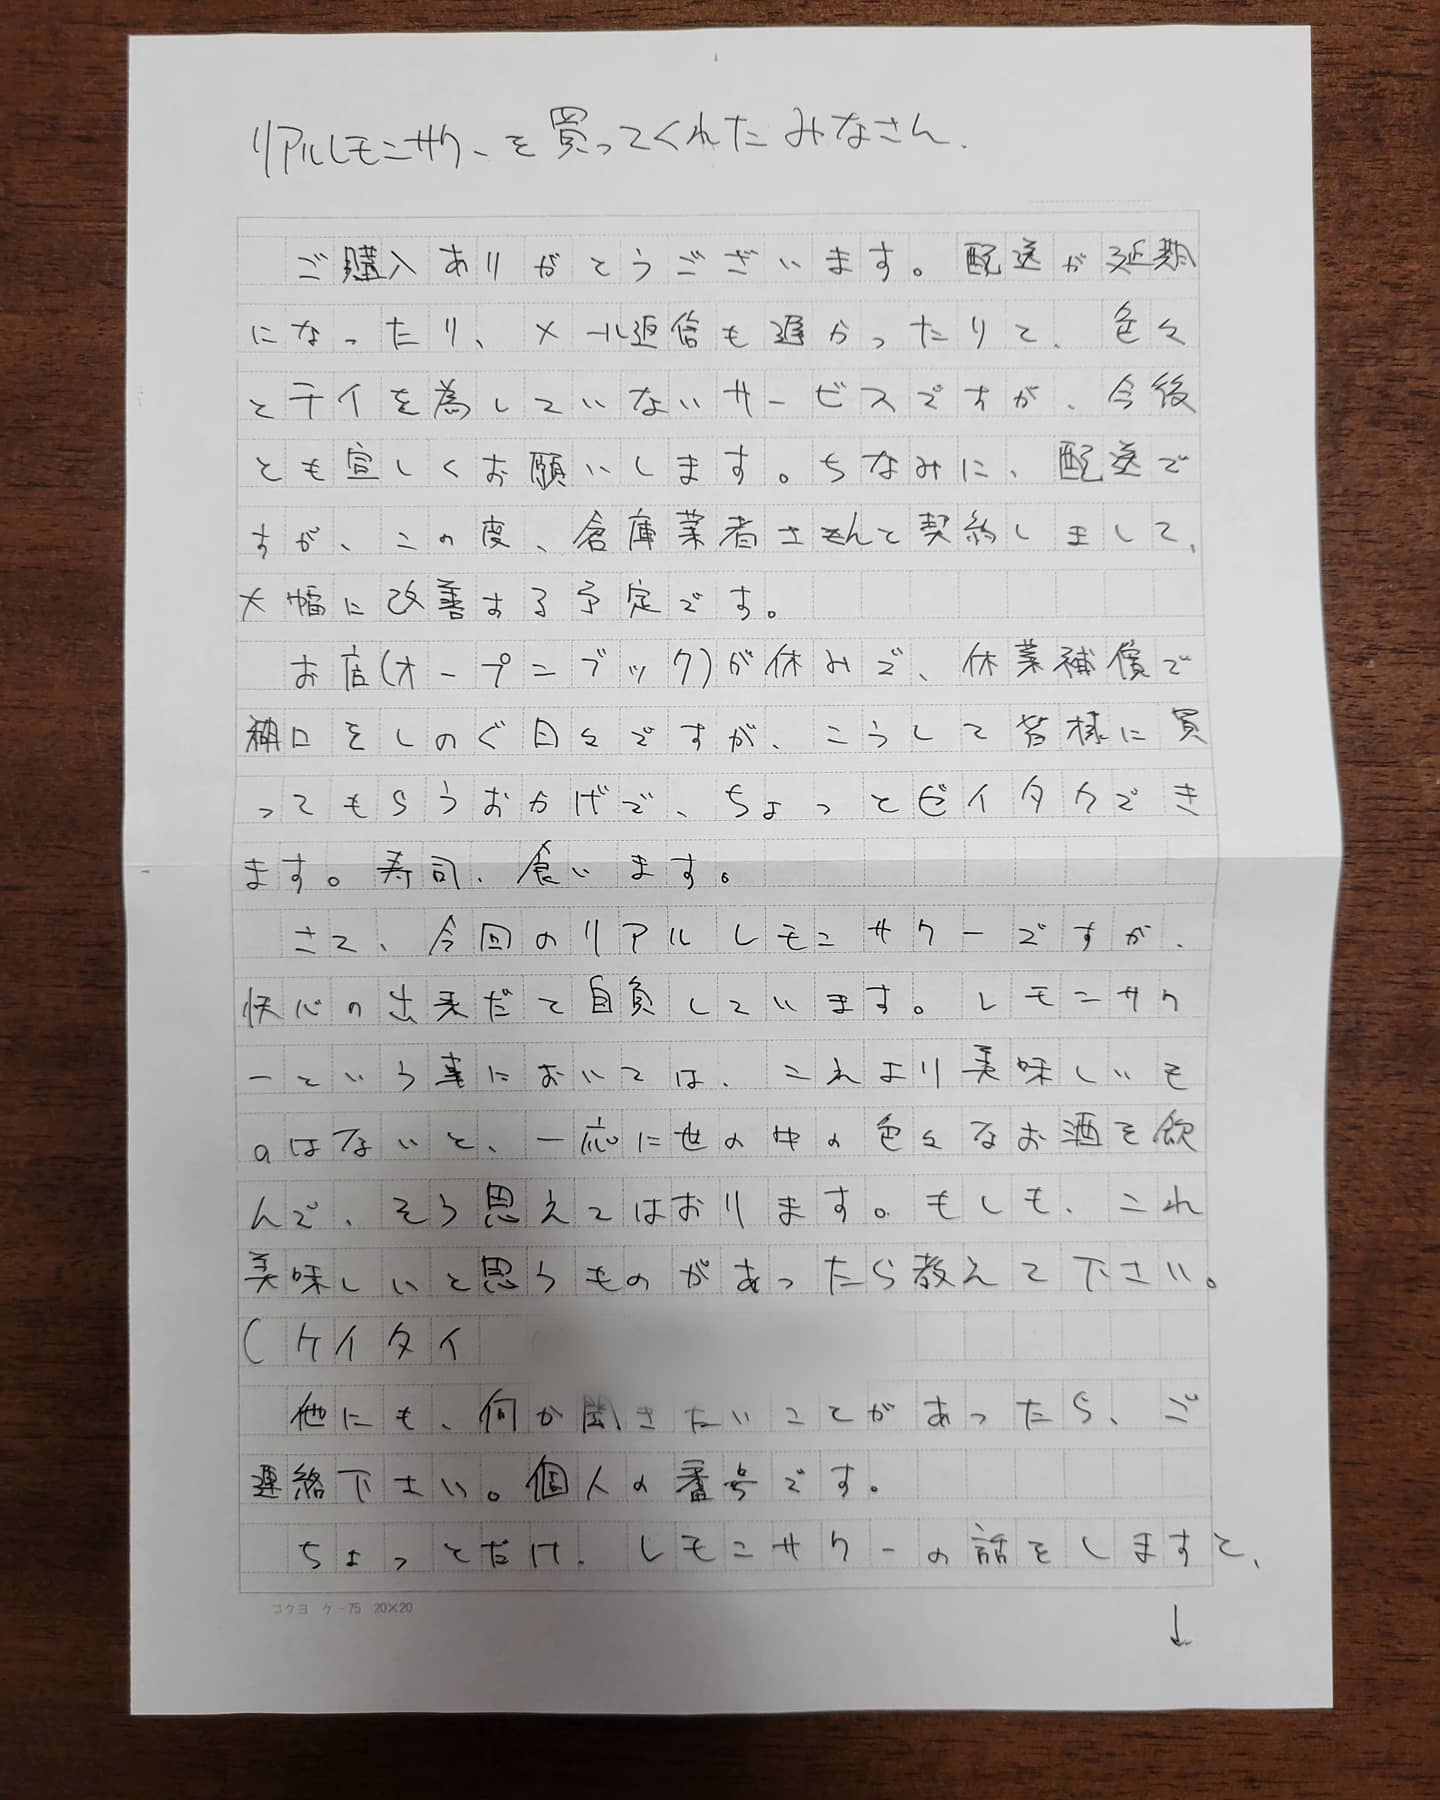 リアルレモンサワーを買ってくれたみなさん.
ご購入ありがとうございます。配送が延期
になったり、メール返信も遅かったりと、色々
とテイを為していないサービスですが、今後
とも宜しくお願いします。ちなみに、配送で
すが、この度、倉庫業者さんと契約しまして、
大幅に改善する予定です。
お店(オープンブック)が休みで、休業補償で
糊口をしのぐ日々ですが、こうして皆様に買
ってもらうおかげで、ちょっとゼイタクでき
ます。寿司、食います。
さて、今回のリアルレモンサワーですが、
快心の出来だと自負しています。レモンサワ
ーという事においては、これより美味しいも
のはないと、一応に世の中の色々なお酒を飲
んで、そう思えてはおります。もしも、これ
美味しいと思うものがあったら教えて下さい。
(ケイタイ
他にも、何か聞きたいことがあったら、ご
連絡下さい。個人の番号です。
ちょっとだけ、レモンサワーの話をしますと、
コクヨ ケー75 20×20
↓